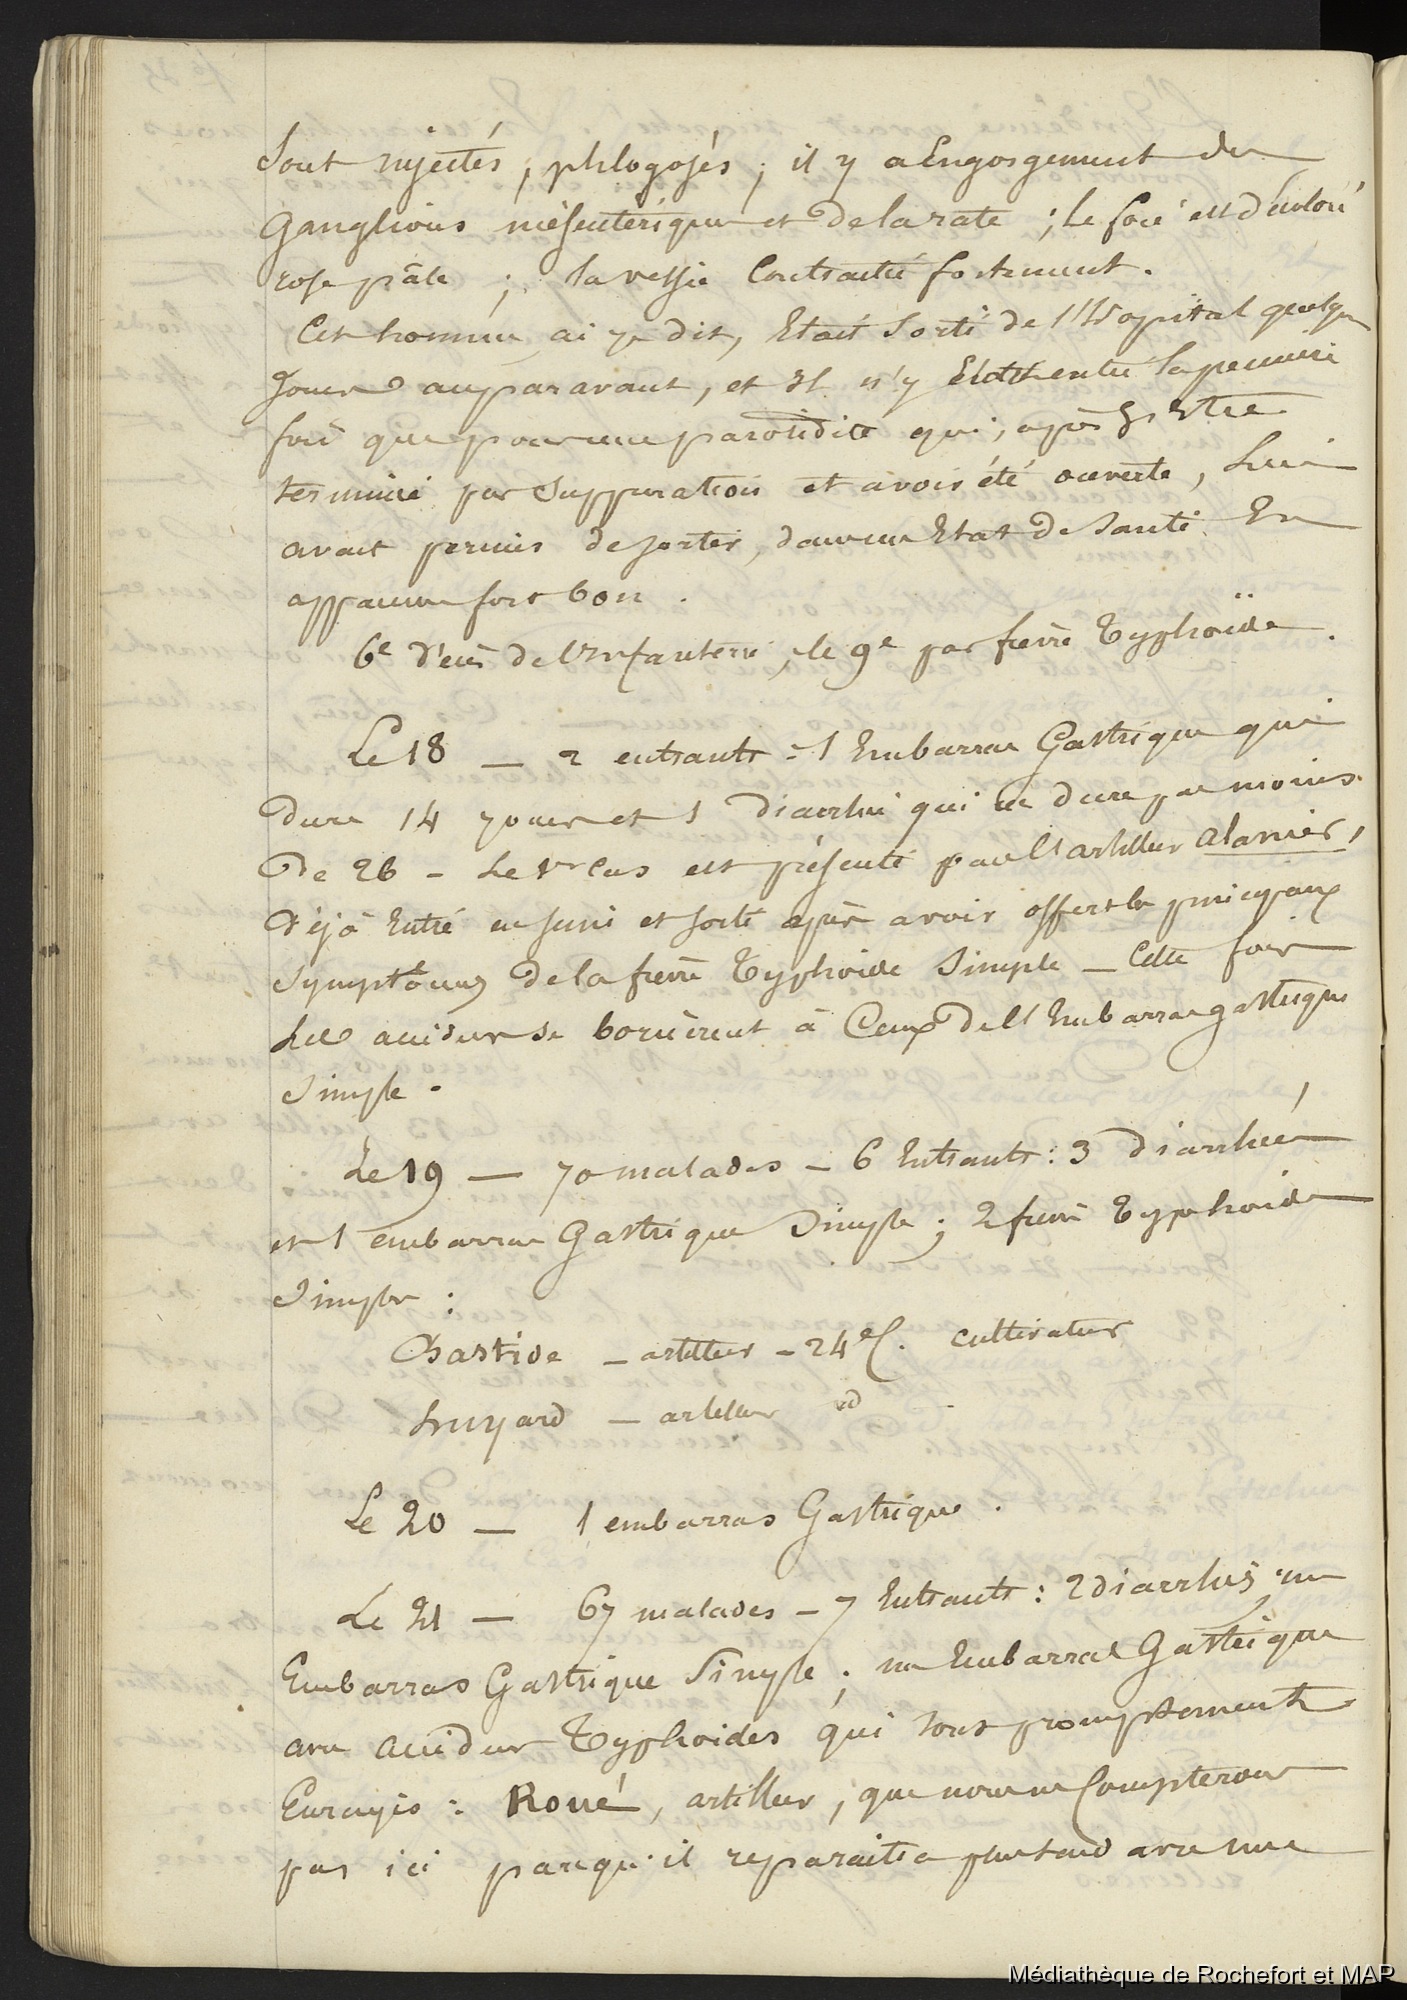 sont injectés, phlogosés; il y a Engorgement des
Ganglions mésentériques et de la rate; le foie est décoloré
rose pâle; la vessie Contractée fortement.
Cet homme, ai-je dit, Etait Sorti de l'Hopital quelques
Jours auparavant, et Il n'y Etait entré la première
fois que pour une parotidite qui, après s'Etre
terminée par Suppuration et avoir été ouverte, lui
avait permis de sortir, dans un Etat de Santé En
apparence fort bon.
6e décès de l'Infanterie, le 9e par fièvre Typhoïde.
Le 18 — 2 entrants : 1 Embarras Gastrique qui
dure 14 jours et 1 diarrhée qui ne dure pas moins
de 26 — Le 1er Cas est présenté par l'artilleur alanier,
déjà Entré en juin et sorti après avoir offert les principaux
symptômes de la fièvre Typhoïde Simple — Cette fois
les accidens se bornèrent à Ceux de l'Embarras gastrique
Simple.
Le 19 — 70 malades — 6 Entrants : 3 diarrhées
et 1 embarras Gastrique Simple; 2 fièvres Typhoïdes
Simples :
Bastide — artilleur — 24 e f. cultivateur
Luyard — artilleur id.
Le 20 — 1 embarras Gastrique.
Le 21 — 67 malades — 7 Entrants : 2 diarrhées; un
Embarras Gastrique Simple; un Embarras Gastrique
avec accidens Typhoïdes qui sont promptement
Enrayés : Roué, artilleur, que nous ne Compterons
pas ici parcequ'il reparaitra plus tard avec une
Médiathèque de Rochefort et MAP